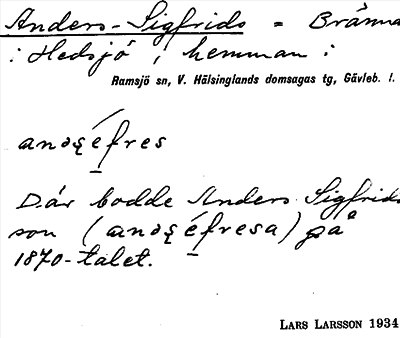 Anders-Sigfrids = Bränna
i Hedsjö, hemman i
Ramsjö sn, V. Hälsinglands domsagas tg, Gävleb. l.
Där bodde Anders Sigfrids
son på
1870-talet.
LARS LARSSON 1934